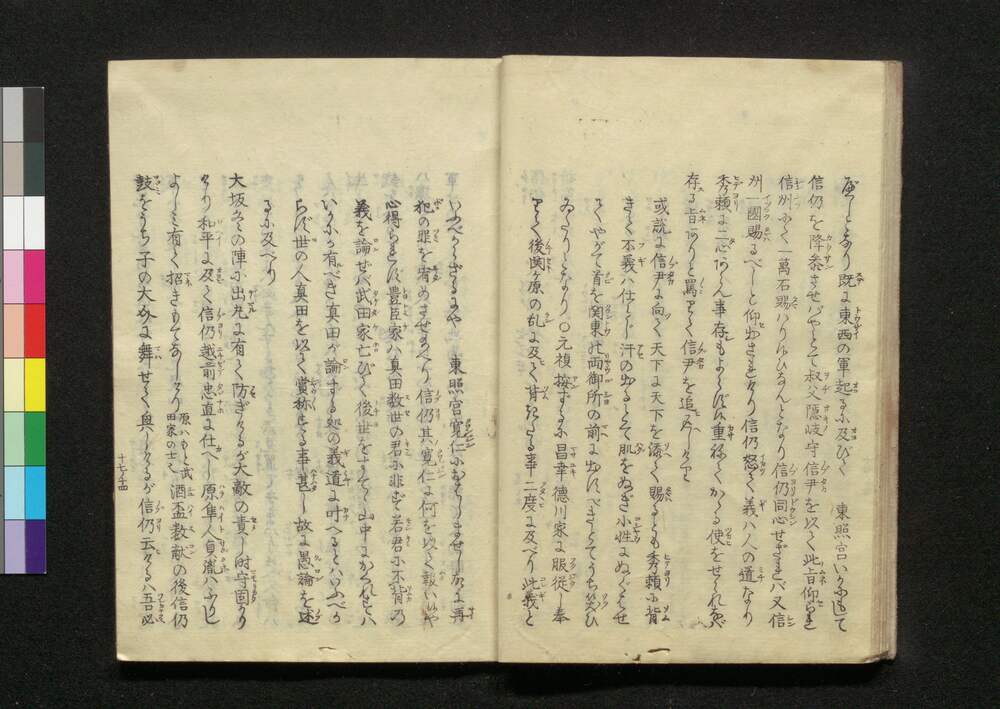 既に東西の軍起るに及びて 東照宮いかにもして
信仍を降参させばやとて叔父隠岐守信尹を以て此旨仰らる
信州にて一萬石賜はりゆひなんとなり信仍同心せざれバ又信
州一國賜るべしと仰出されけり信仍怒て義ハ人の道なり
秀頼に二心あらん事存もよらば重ねてかゝる使をせられなバ
存る旨ありと罵りて信尹を追かへしけり
或説に信尹に向て天下に天下を添て賜るとも秀頼に背
きて不義ハ仕らじ汗の出るとて肌をぬぎ小性にぬぐハせ
てやがて首を関東の両御所の前に出すべきとてうち笑ひ
ゐたりとなり〇元禎按ずるに昌幸徳川家に服従し奉
りて後関ヶ原の乱に及て背きたる事二度に及べり此義を
いふべからざるにや 東照宮寛仁におはしませし故に再
犯の罪を宥めさせ玉へり信仍其寛仁に何を以て敵いしや
心得られず豊臣家ハ真田数世の君に非ず若君に不背の
義を論せば武田家亡びて後世をすてゝ山中にかくれずハ
いかが有べき真田が論する処の義道に叶へるとハいふべか
らず世の人真田を以て賞称する事甚し故に愚論を述
るに及べり
大坂冬の陣に出丸に有て防ぎけるが大敵の責し時守固かり
けり和平に及て信仍越前忠直に仕へし原隼人貞胤ハふかし
よしミ有て招きもてなしけり 原ハもと武田家の士也 酒盃数献の後信仍
鼓をうち子の大介に舞せて興しけるが信仍云けるハ吾必
十七ノ四